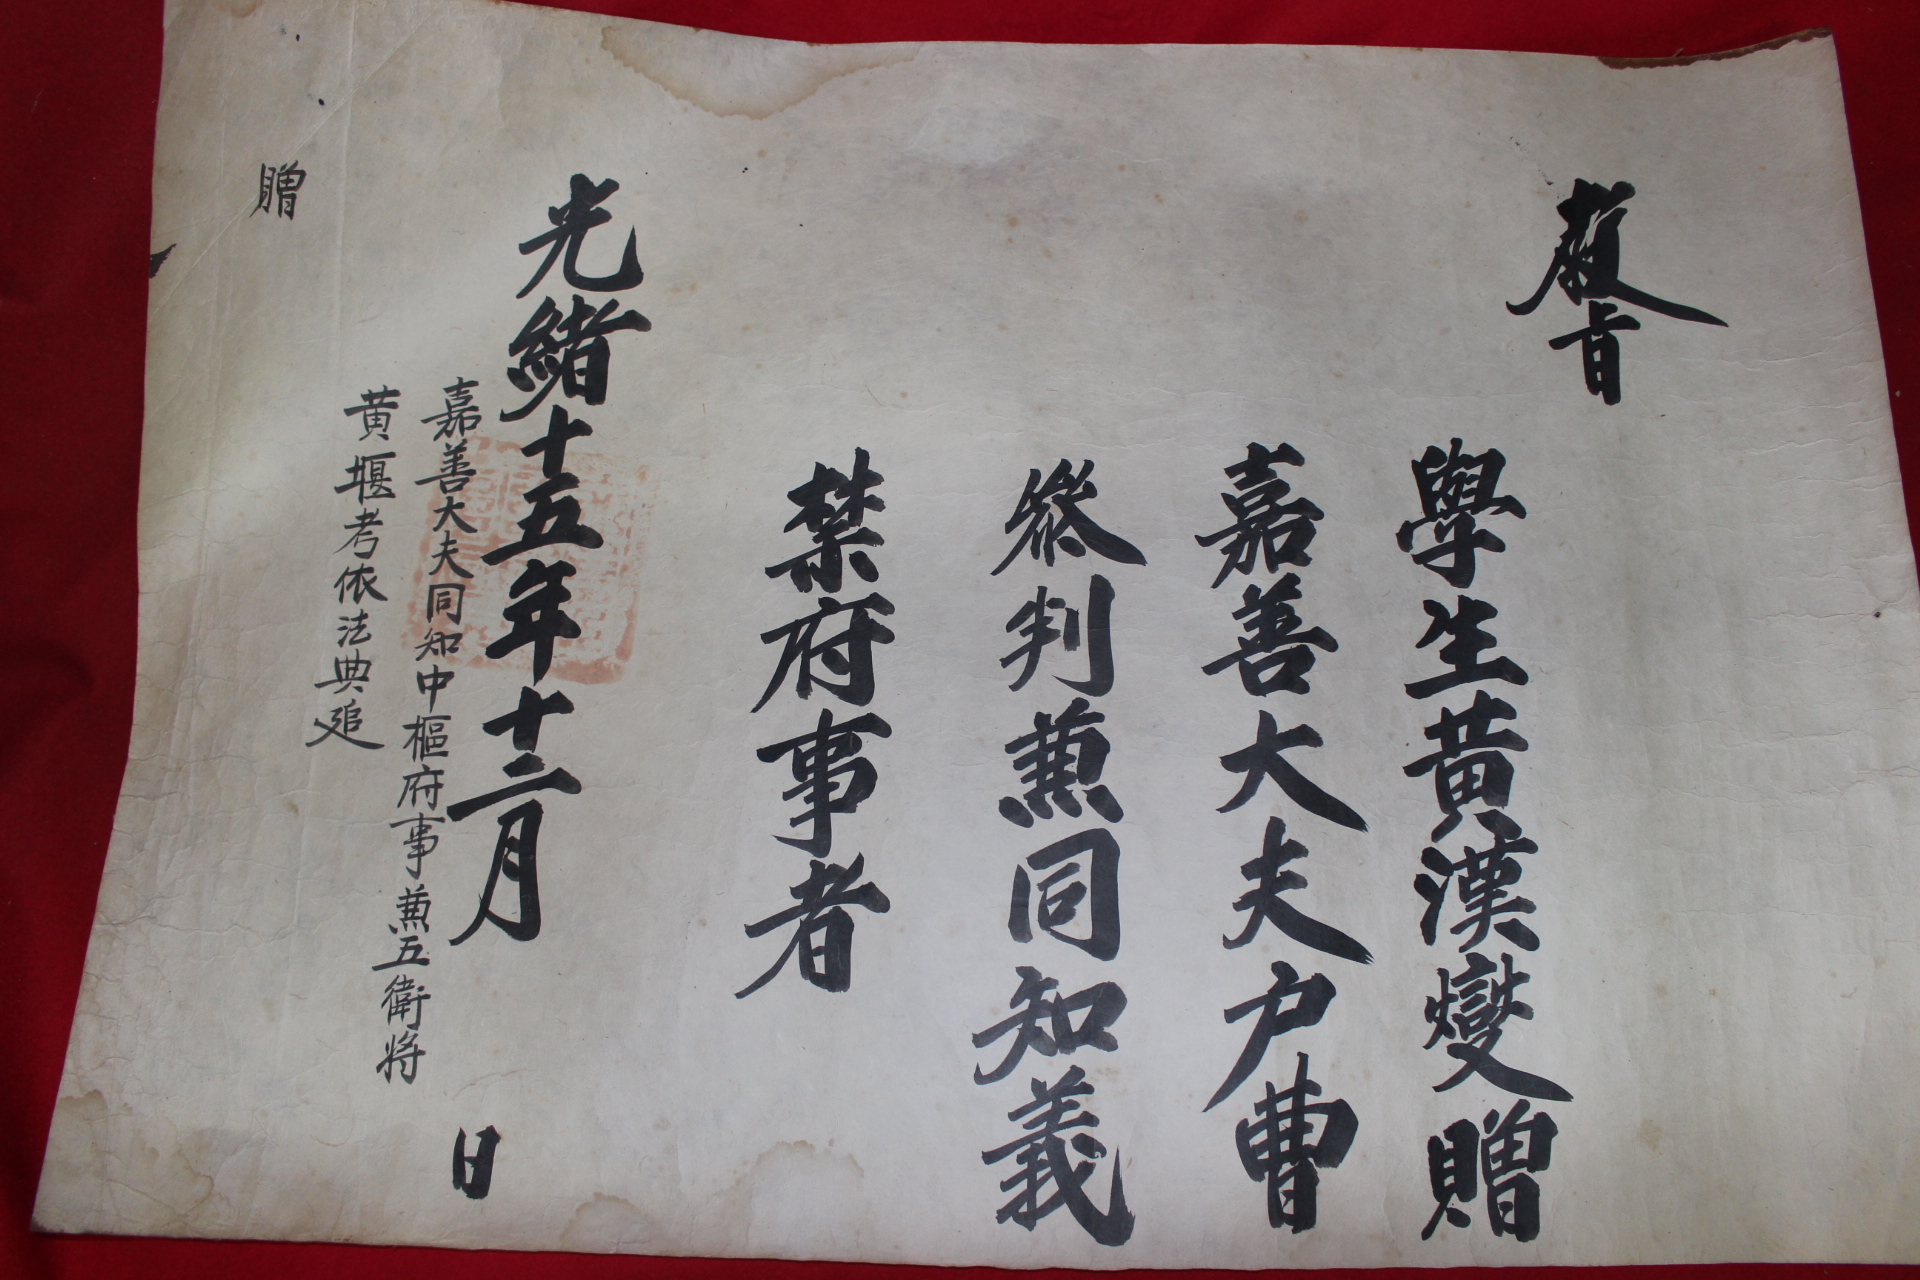 教旨
學生黃漢燮贈
嘉善大夫戶曹
叅判兼同知義
禁府事者
光緖十五年十二月 日
嘉善大夫同知中樞府事兼五衛將
黃堰考依法典追
贈